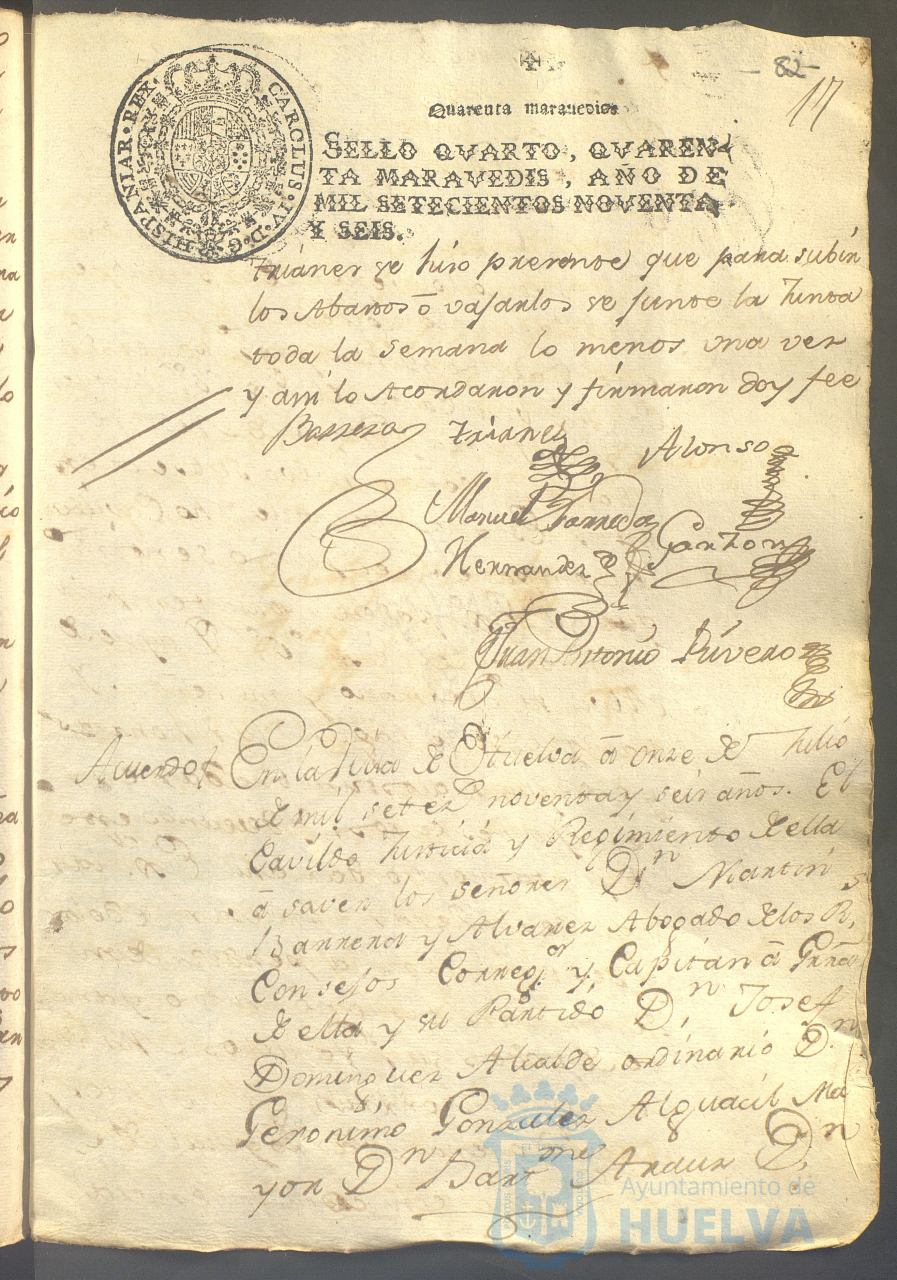 82
17
Quarenta maravedis
CAROLUS·IV·D·G·HISPANIAR·REX·
SELLO QVARTO, QVAREN-
TA MARAVEDIS, AÑO DE
MIL SETECIENTOS NOVENTA
Y SEIS.
Trianes se hiso presente que para subir
los Abastos ō vajarlos se junte la Junta
toda la semana lo menos una ves
y asi lo Acordaron y firmaron doy fee
Barrera Trianes Alonso
Manuel Barreda
Hernandez Garzon
Juan Antonio Rivero
Acuerdo En la Villa de Huelva ā onze de Julio
de mil setez.s noventa y seis años. El
Cavildo Justicia y Regimiento de ella
ā saver los señores Dn Martin
Barrera y Alvares Abogado de los R.s
Consejos Correg.or y Capitan ā Grrā
de ella y su Partido Dn Josef
Dominguez Alcalde ordinario Dn
Geronimo Gonzalez Alguacil Ma
yor Dn Bartme Dn
Ayuntamiento de
HUELVA